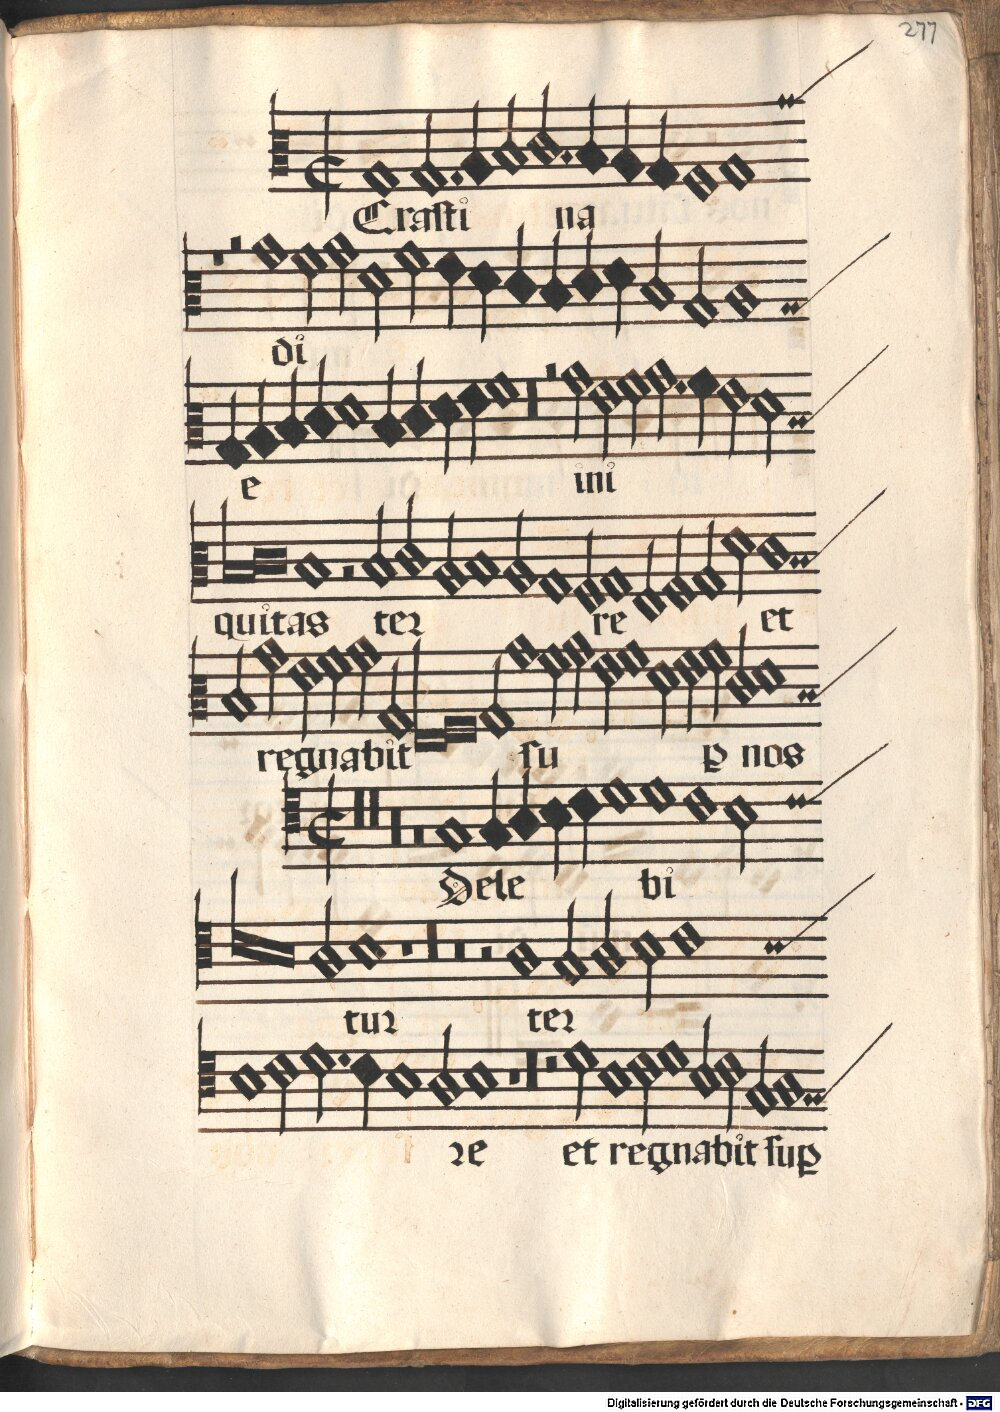 277
Crasti na
di
e ini
quitas ter re et
regnabit su ꝑ nos
Dele bi
tur ter
re et regnabit suꝑ
Digitalisierung gefördert durch die Deutsche Forschungsgemeinschaft - DFG